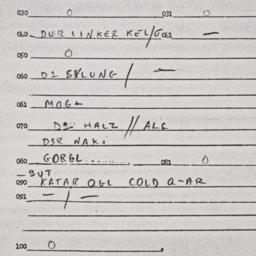 030 0 031 0
040 DER LINKER KEL/ 041 —
050 0
060 DI /  —
061 MOG
070 DA HALZ // ALE
DER NAKI
080 GORGL...... 081 0
— BUT
090 KATAR OGL COLD Q-AR
091 — / —
100 0